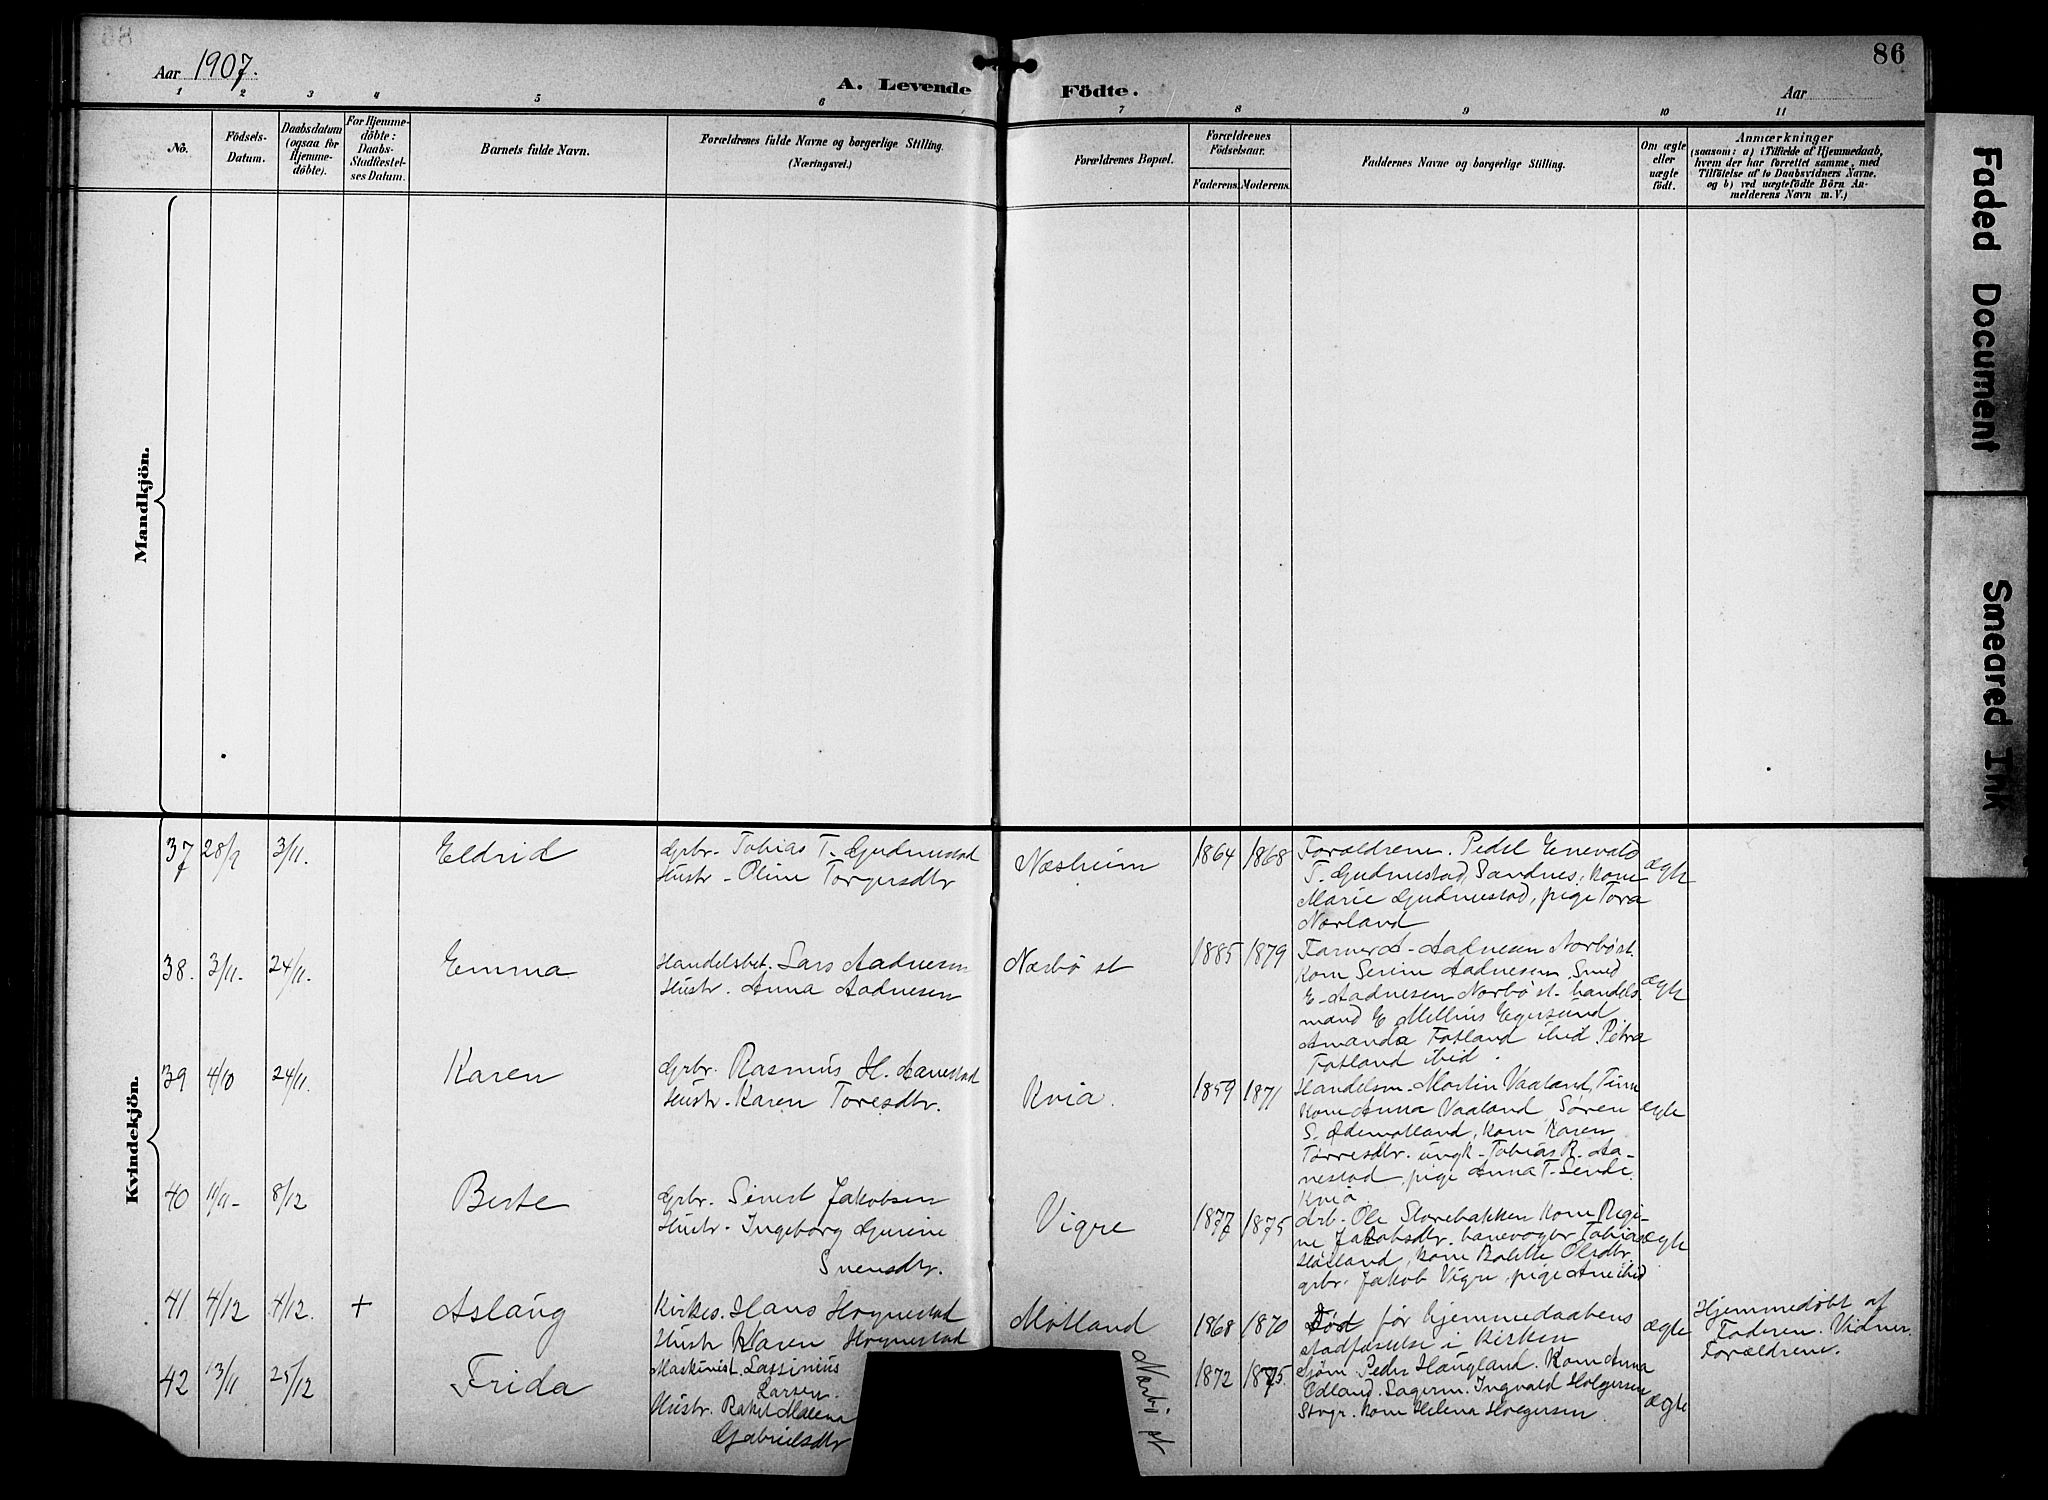 86
Aar 1907.
A. Levende Födte.
Aar
1 2 3 4 5 6 7 8 9 10 11
No.
Födsels-
Datum.
Daabsdatum
(ogsaa for
Hjemme-
döbte).
For Hjemme-
döbte:
Daabs-
Stadfæstel-
ses Datum.
Barnets fulde Navn.
Forældrenes fulde Navne og borgerlige Stilling.
(Næringsvei.)
Forældrenes Bopæl.
Forældrenes
Födselsaar.
Faderens. Moderens.
Faddernes Navne og borgerlige Stilling.
Om ægte
eller
uægte
födt.
Anmærkninger
(saasom: a) i Tilfælde af Hjemmedaab,
hvem der har forrettet samme, med
Tilföielse af to Daabsvidners Navne.
og b) ved uægtefödte Börn An-
melderens Navn m. V.)
Mandkjön.
Kvindekjön.
37 28/9 3/11. Eldrid
Grbr. Tobias T. Gudmestad
Hustr. Oline Torgersdtr
Næsheim 1864 1868
Forældrene. Pedel Enevald
T. Gudmestad, Sandnes, kone
Marie Gudmestad, pige Tora
Norland
ægte
38. 3/11. 24/11. Emma
Handelsbet. Lars Aadnesen
Hustr. Anna Aadnesen
Nærbö st 1885 1879
Farver A. Aadnesen Nærbö st.
kone Serine Aadnesen, Smed
E. Aadnesen Nærbö st. handels
mand E Mellius Egersund
Amanda Fotland ibid Petra
Fotland ibid.
ægte
39 4/10 24/11. Karen
Grbr. Rasmus H. Aanestad
Hustr. Karen Toresdtr.
Kvia. 1859 1871
Handelsm. Martin Vaaland, Time
kone Anna Vaaland, Sören
S. Ödemotland, kone Karen
Torresdtr. ungk. Tobias R. Aa-
nestad, pige Anna T. Sende
Kvia
ægte
40 11/11- 8/12 Berte
Grbr. Sivert Jakobsen
Hustr. Ingeborg Gurine
Svensdtr.
Vigre 1877 1875
Arb. Ole Storebakken kone Regi-
ne Jakobsdtr. banevogter Tobias
Höiland, kone Bolette Olsdtr
grbr. Jakob Vigre, pige Ane ibid
ægte
41 4/12 4/12. + Aslaug
Kirkes. Hans Hognestad
Hustr Karen Hognestad
Motland 1868 1870
Död för hjemmedaabens
stadfæstelse i Kirken
ægte
Hjemmedöbt af
Faderen. Vidner
Forældrene.
42 13/11 25/12 Frida
Maskinist Lassinius
Larsen.
Hustr. Rakel Malena
Gabrielsdtr
Nærbö st 1872 1875.
Sjöm. Peder Haugland. Kone Anna
Edland. Lagerm. Ingvald Holgersen
Stvgr. kone Helena Holgersen.
ægte
Faded Document
Smeared Ink